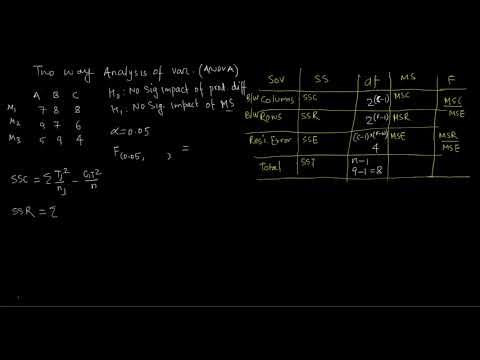 Two way Analysis of var. (ANOVA)
A B C
M1 7 8 8
M2 9 7 6
M3 5 9 4
H0: No Sig impact of prod. diff.
H1: No Sig. impact of MS
α=0.05
F(0.05, ) =
SSC = Σ Tj²/nj - GT²/n
SSR = Σ
SOV SS df MS F
B/w Columns SSC 2(c-1) MSC MSC/MSE
B/w Rows SSR 2(r-1) MSR MSR/MSE
Resi. Error SSE (c-1)×(r-1) 4 MSE
Total SST n-1
9-1=8